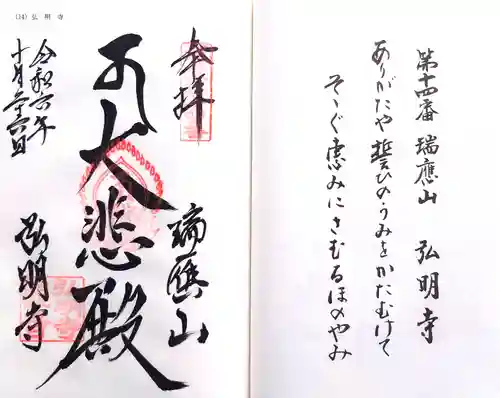 第十四番 瑞應山 弘明寺
ありがたや誓ひのうみをかたむけて
そゝぐ恵みにさむるほのやみ
(14) 弘明寺
奉拝
瑞應山
大悲殿
弘明寺
令和六年
十月二十六日